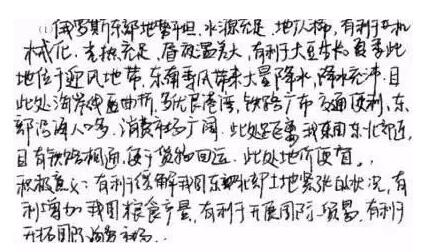 (1)俄罗斯东部地势平坦,水源充足,地广人稀,有利于机
械化。光热充足,昼夜温差大,有利于大豆生长。夏季此
地位于迎风地带,东南季风带来大量降水,降水充沛。且
此处海岸线曲折,多优良港湾,铁路广布,交通便利,东
部沿海人口多,消费市场广阔。此处距离我国东北部近,
且有铁路相通,便于货物回运。此处地价便宜。
积极意义:有利于缓解我国东北部土地紧张的状况,有
利增加我国粮食产量,有利于开展国际贸易,有利于
开拓国际消费市场。